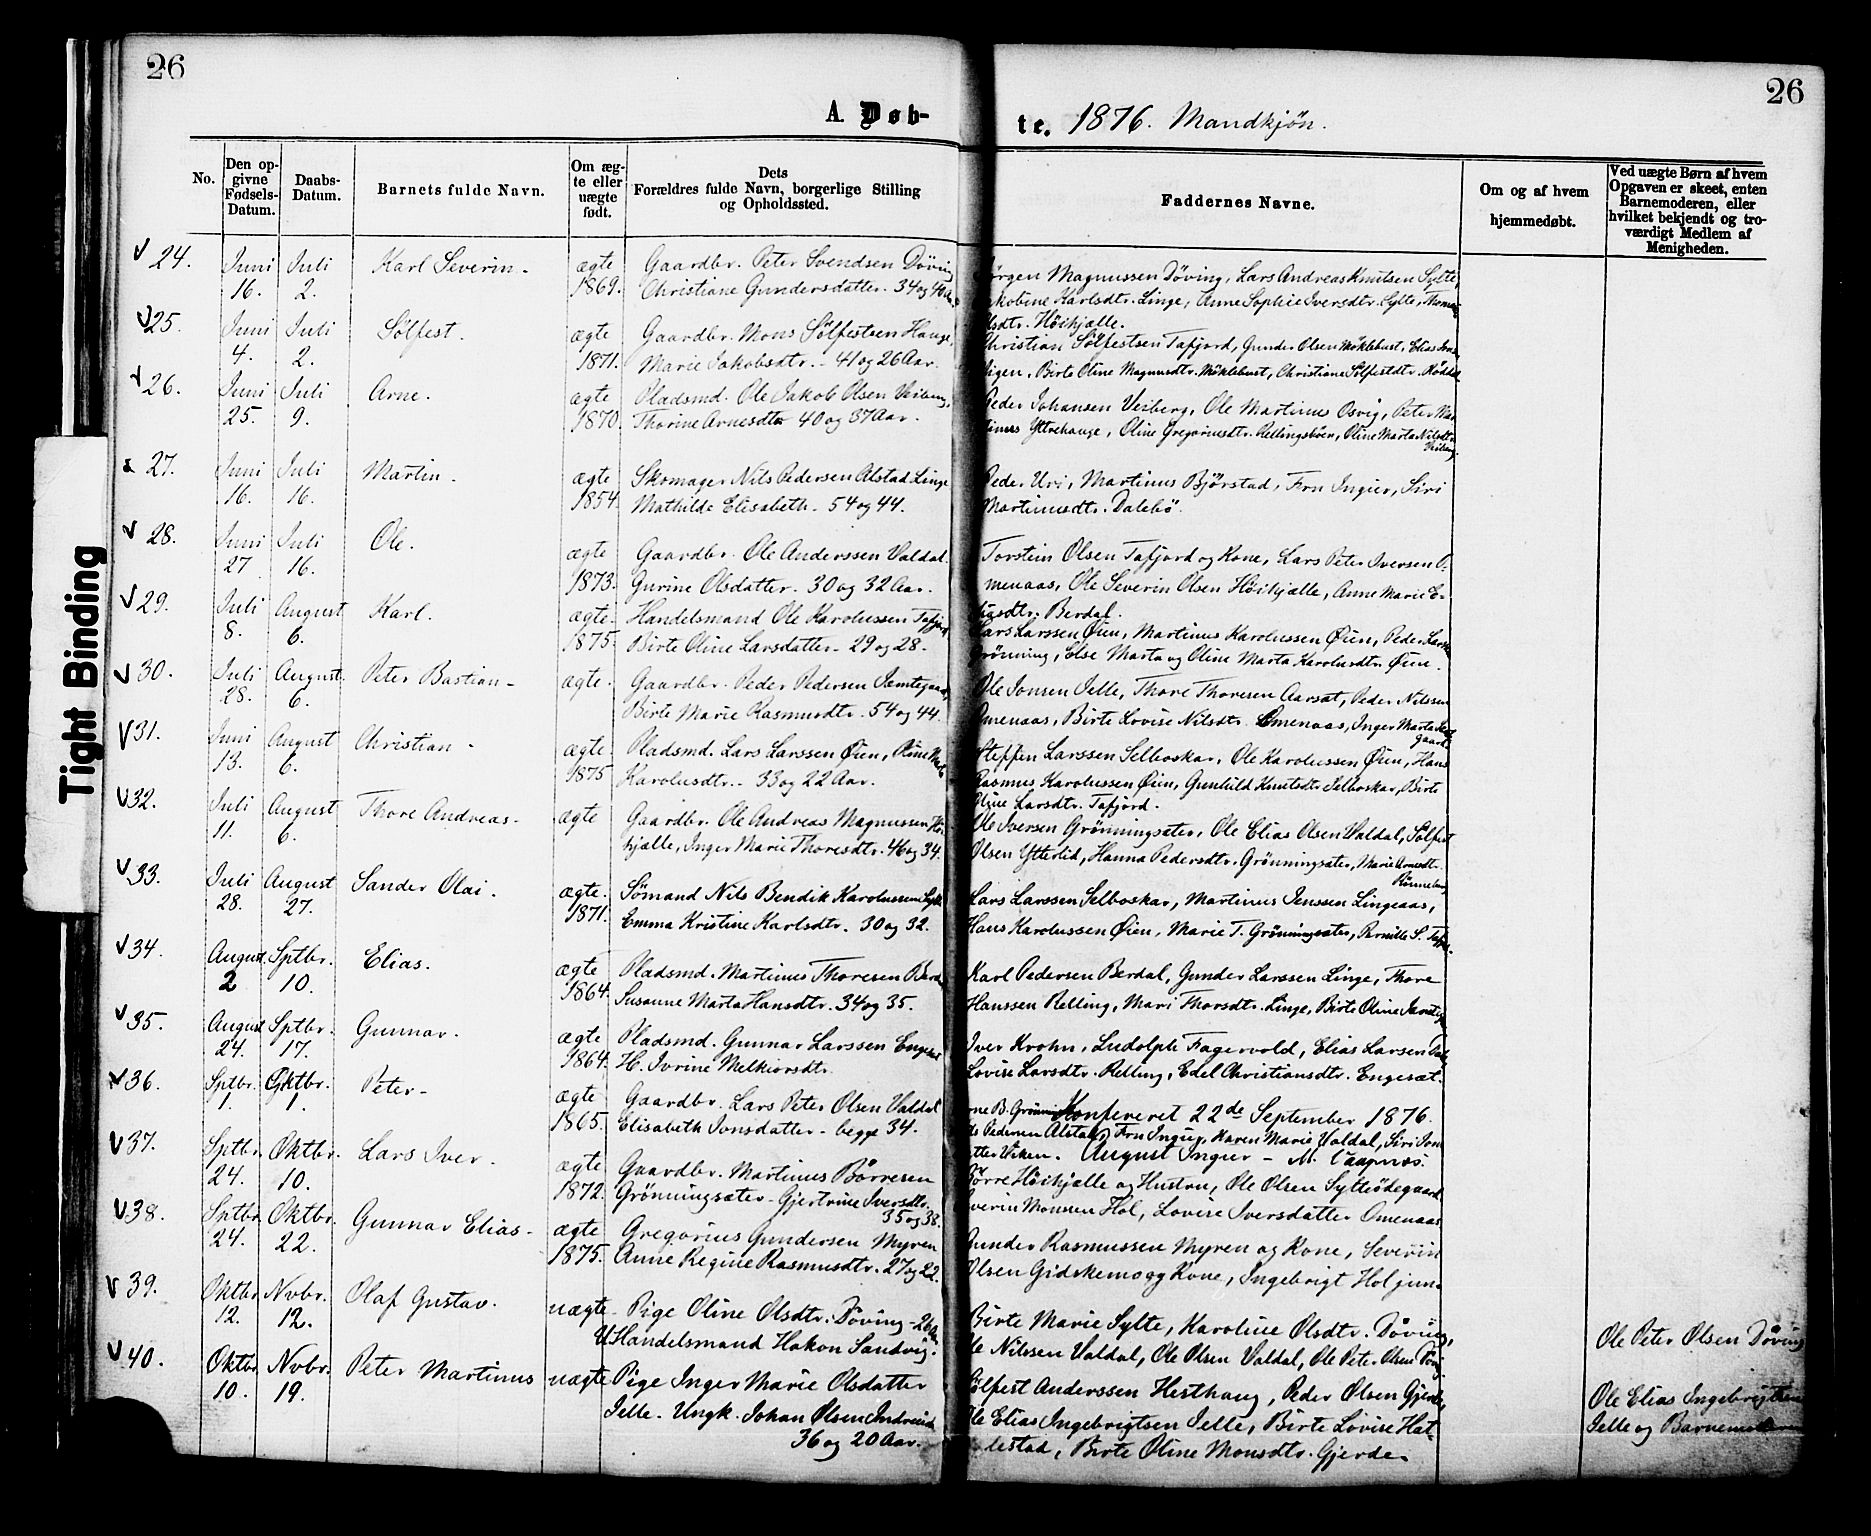 26
26
A. Døb-
te. 1876. Mandkjön.
No.
Den op-
givne
Fødsels-
Datum.
Daabs-
Datum.
Barnets fulde Navn.
Om æg-
te eller
uægte
født.
Dets
Forældres fulde Navn, borgerlige Stilling
og Opholdssted.
Faddernes Navne.
Om og af hvem
hjemmedøbt.
Ved uægte Børn af hvem
Opgaven er skeet, enten
Barnemoderen, eller
hvilket bekjendt og tro-
værdigt Medlem af
Menigheden.
24. Juni Juli Karl Severin. ægte Gaardbr. Peter Svendsen Döving
16. 2. 1869. Christiane Gundersdatter. 34 og 40 Aar.
Jörgen Magnussen Döving, Lars Andreas Knutsen Sylte,
Jakobine Karlsdtr. Linge, Anne Sophie Iversdtr. Sylte,
Olsdtr. Höihjælle.
25. Juni Juli Sölfest. ægte Gaardbr. Mons Sölfestsen Hauge,
4. 2. 1871. Marie Jakobsdtr. - 41 og 26 Aar.
Christian Sölfestsen Tafjord, Gunder Olsen Möklebust, Elias
Birte Oline Magnusdtr. Möklebust, Christiane Sölfestdtr.
26. Juni Juli Arne. ægte Pladsmd. Ole Jakob Olsen Veiberg,
25. 9. 1870. Thorine Arnesdtr 40 og 37 Aar.
Peder Johansen Veiberg, Ole Martinus Osvig, Peter Mar-
tinus Yttrehauge, Oline Gregoriusdtr. Rellingsböen, Oline Marta Nilsdtr.
Veiberg.
27. Juni Juli Martin. ægte Skomager Nils Pedersen Alstad Linge
16. 16. 1854. Mathilde Elisabeth. - 54 og 44.
Peder Uri, Martinus Bjørstad, Fru Ingier, Siri
Martinusdtr. Dalebö.
28. Juni Juli Ole. ægte Gaardbr. Ole Anderssen Valdal.
27 16. 1873. Gurine Olsdatter. 30 og 32 Aar.
Torstein Olsen Tafjord og Kone, Lars Peter Iversen O-
menaas, Ole Severin Olsen Höihjælle, Anne Marie E-
liasdtr. Berdal.
29. Juli August Karl. ægte. Handelsmand Ole Karolussen Tafjord
8. 6. 1875. Birte Oline Larsdatter. 29 og 28.
Lars Larssen Öien, Martinus Karolussen Öien, Peder Larssen
Grönning, Else Marta og Oline Marta Karolusdtr. Öien.
30. Juli August Peter Bastian. ægte. Gaardbr. Peder Pedersen Jemtegaard,
28. 6. Birte Marie Rasmusdtr. 54 og 44.
Ole Jonsen Jelle, Thore Thoresen Aarsæt, Peder Nilssen
Omenaas, Birte Lovise Nilsdtr. Omenaas, Inger Marta Jemte-
gaard.
31. Juni August Christian. ægte. Pladsmd. Lars Larssen Öien, Oline Marta
13. 6. 1875 Karolusdtr. - 33 og 22 Aar.
Steffen Larssen Selboskar, Ole Karolussen Öien, Hans
Rasmus Karolussen Öien, Gunhild Knutsdtr Selboskar, Birte
Oline Larsdtr. Tafjord.
32. Juli August Thore Andreas. ægte Gaardbr. Ole Andreas Magnussen Höi-
11. 6. hjælle, Inger Marie Thoresdtr. 46 og 34.
Ole Iversen Grönningsæter, Ole Elias Olsen Valdal, Sölfest
Olsen Ytterlid, Hanna Pedersdtr. Grönningsæter, Marie Arnesdtr.
33. Juli August Sander Olai. ægte. Sömand Nils Bendik Karolussen Sylte
28. 27. 1871. Emma Kristine Karlsdtr. 30 og 32.
Lars Larssen Selboskar, Martinus Jenssen Lingeaas,
Hans Karolussen Öien, Marie T. Grönningsæter, Pernille S. Tafjord.
34. August. Sptbr. Elias. ægte Pladsmd. Martinus Thoresen Berdal
2 10. 1864. Susanne Marta Hansdtr. 34 og 35.
Karl Pedersen Berdal, Gunder Larssen Linge, Thore
Hanssen Relling, Mari Thorsdtr. Linge, Birte Oline
35. August Sptbr. Gunnar. ægte Pladsmd. Gunnar Larssen Engeset
24. 17. 1864. H. Ivrine Melkiorsdtr.
Iver Krohn, Ludolph Fagervold, Elias Larsen
Lovise Larsdtr. Relling, Edel Christiansdtr. Engesæt.
36. Sptbr. Oktbr. Peter. ægte Gaardbr. Lars Peter Olsen Valdal
1. 1. 1865. Elisabeth Jonsdatter. begge 34.
Konfereret 22de September 1876.
Pedersen Alstad, Fru Ingier, Karen Marie Valdal, Siri
Viken. August Ingier - M.
37. Sptbr. Oktbr. Lars Iver. ægte Gaardbr. Martinus Börresen
24. 10. 1872. Grönningsæter. Gjertrine Iversdtr.
35 og 38.
Börre Höihjælle og Hustru, Ole Olsen Sylteödegaard
Severin Monsen Hol, Lovise Iversdatter Omenaas
38. Sptbr. Oktbr. Gunnar Elias. ægte Gregorius Gundersen Myren
24. 22. 1875. Anne Regine Rasmusdtr. 27 og 22.
Gunder Rasmussen Myren og Kone, Severin
Olsen Gidskemo og Kone, Ingebrigt Hol jun.
39. Oktbr. Nvbr. Olaf Gustav. uægte. Pige Oline Olsdtr. Döving - 26 Aar
12. 12. U. Handelsmand Hakon Sandvig.
Birte Marie Sylte, Karoline Olsdtr. Döving,
Ole Nilssen Valdal, Ole Olsen Valdal, Ole Peter Olsen Döving
Ole Peter Olsen Döving
40. Oktbr. Nvbr. Peter Martinus uægte Pige Inger Marie Olsdatter
10. 19. Jelle. Ungk. Johan Olsen Indreeide
36 og 20 Aar.
Sölfest Anderssen Hesthaug, Peder Olsen Gjerde
Ole Elias Ingebrigtsen Jelle, Birte Lovise Hat-
lestad, Birte Oline Monsdtr. Gjerde.
Ole Elias Ingebrigtsen
Jelle og Barnemoderen
Tight Binding